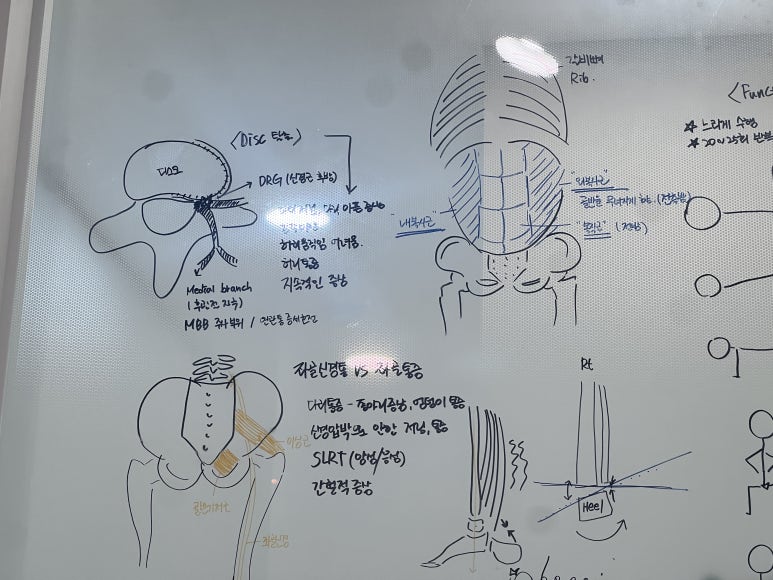 <Disc 탈출>
디스크
DRG (신경근 후방)
다리 저림, 다리 아픈 증상
허리움직임 어려움.
허리통증
지속적인 증상
Medial branch
MBB 주사부위 /
갈비뼈
Rib.
"외복사근"
골반을 무너지게 하는. (전방)
"내복사근"
"복직근" (전방)
<Func
☆ 느리게 수행
☆ 20~25회 반복
좌골신경통 VS 좌골통증
다리통증 - 종아리증상, 엉덩이 통증
신경압박으로 인한 저림, 통증
SLRT (양성/음성)
간헐적 증상
이상근
좌골신경
Rt
Heel